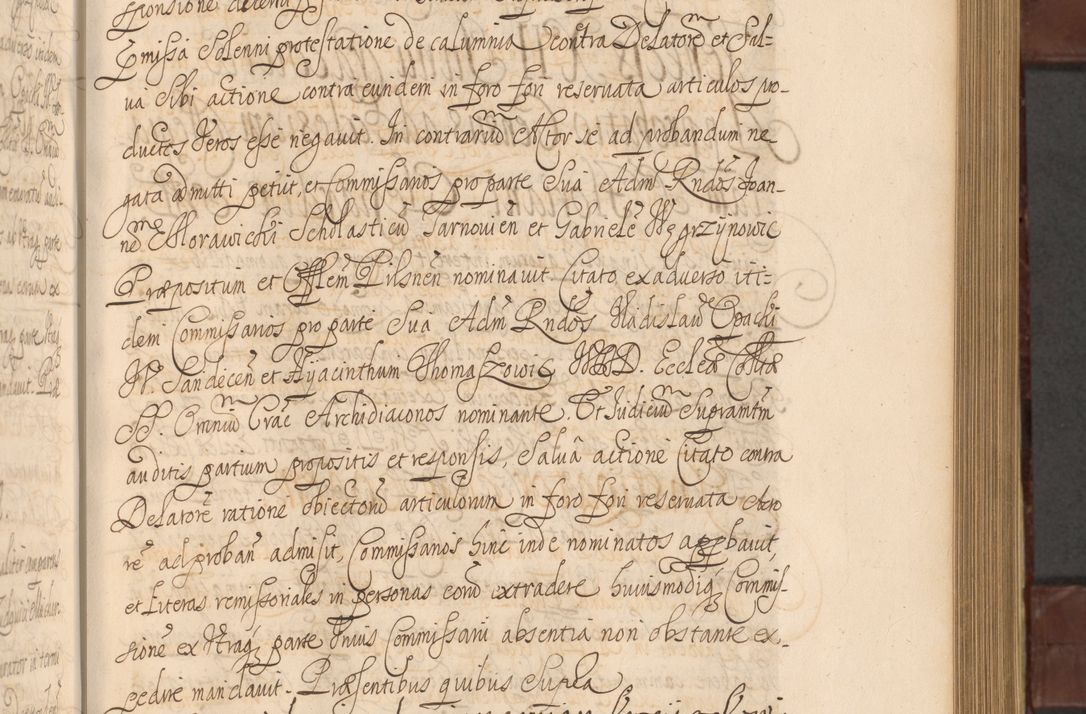 Emissa Solenni protestatione de calumnia contra Delatorem et Sal-
va Sibi actione contra eundem in foro fori reservata articulos pro-
ductos Veros esse negavit. In contrarium Actor se ad probandum ne
gata admitti petiit, et Commissarios pro parte Sua Adm Rndos Joan-
nem Morawicki Scholasticum Tarnovien et Gabrielem Węgrzynowic
Præpositum et Offlem Pilsnen nominavit. Citato ex adverso iti-
dem Commissarios pro parte Sua Adm Rndos Vladislaum Opacki
V. Sandecen et Hyacinthum Thomaszowic D. Ecclea Collta
SS. Omnium Crac Archidiaconos nominante. Et Judicium Supramtm
auditis partium propositis et responsis, Salvâ actione Citato contra
Delatorem ratione obiectorum articulorum in foro fori reservata Acto
rem ad proban admisit, Commissarios hinc inde nominatos approbavit,
et Literas remissoriales in personas eorum extradere huiusmodiq Commis-
sione ex Utraq parte Unius Commissarii absentia non obstante ex-
pedire mandavit. Præsentibus quibus Supra